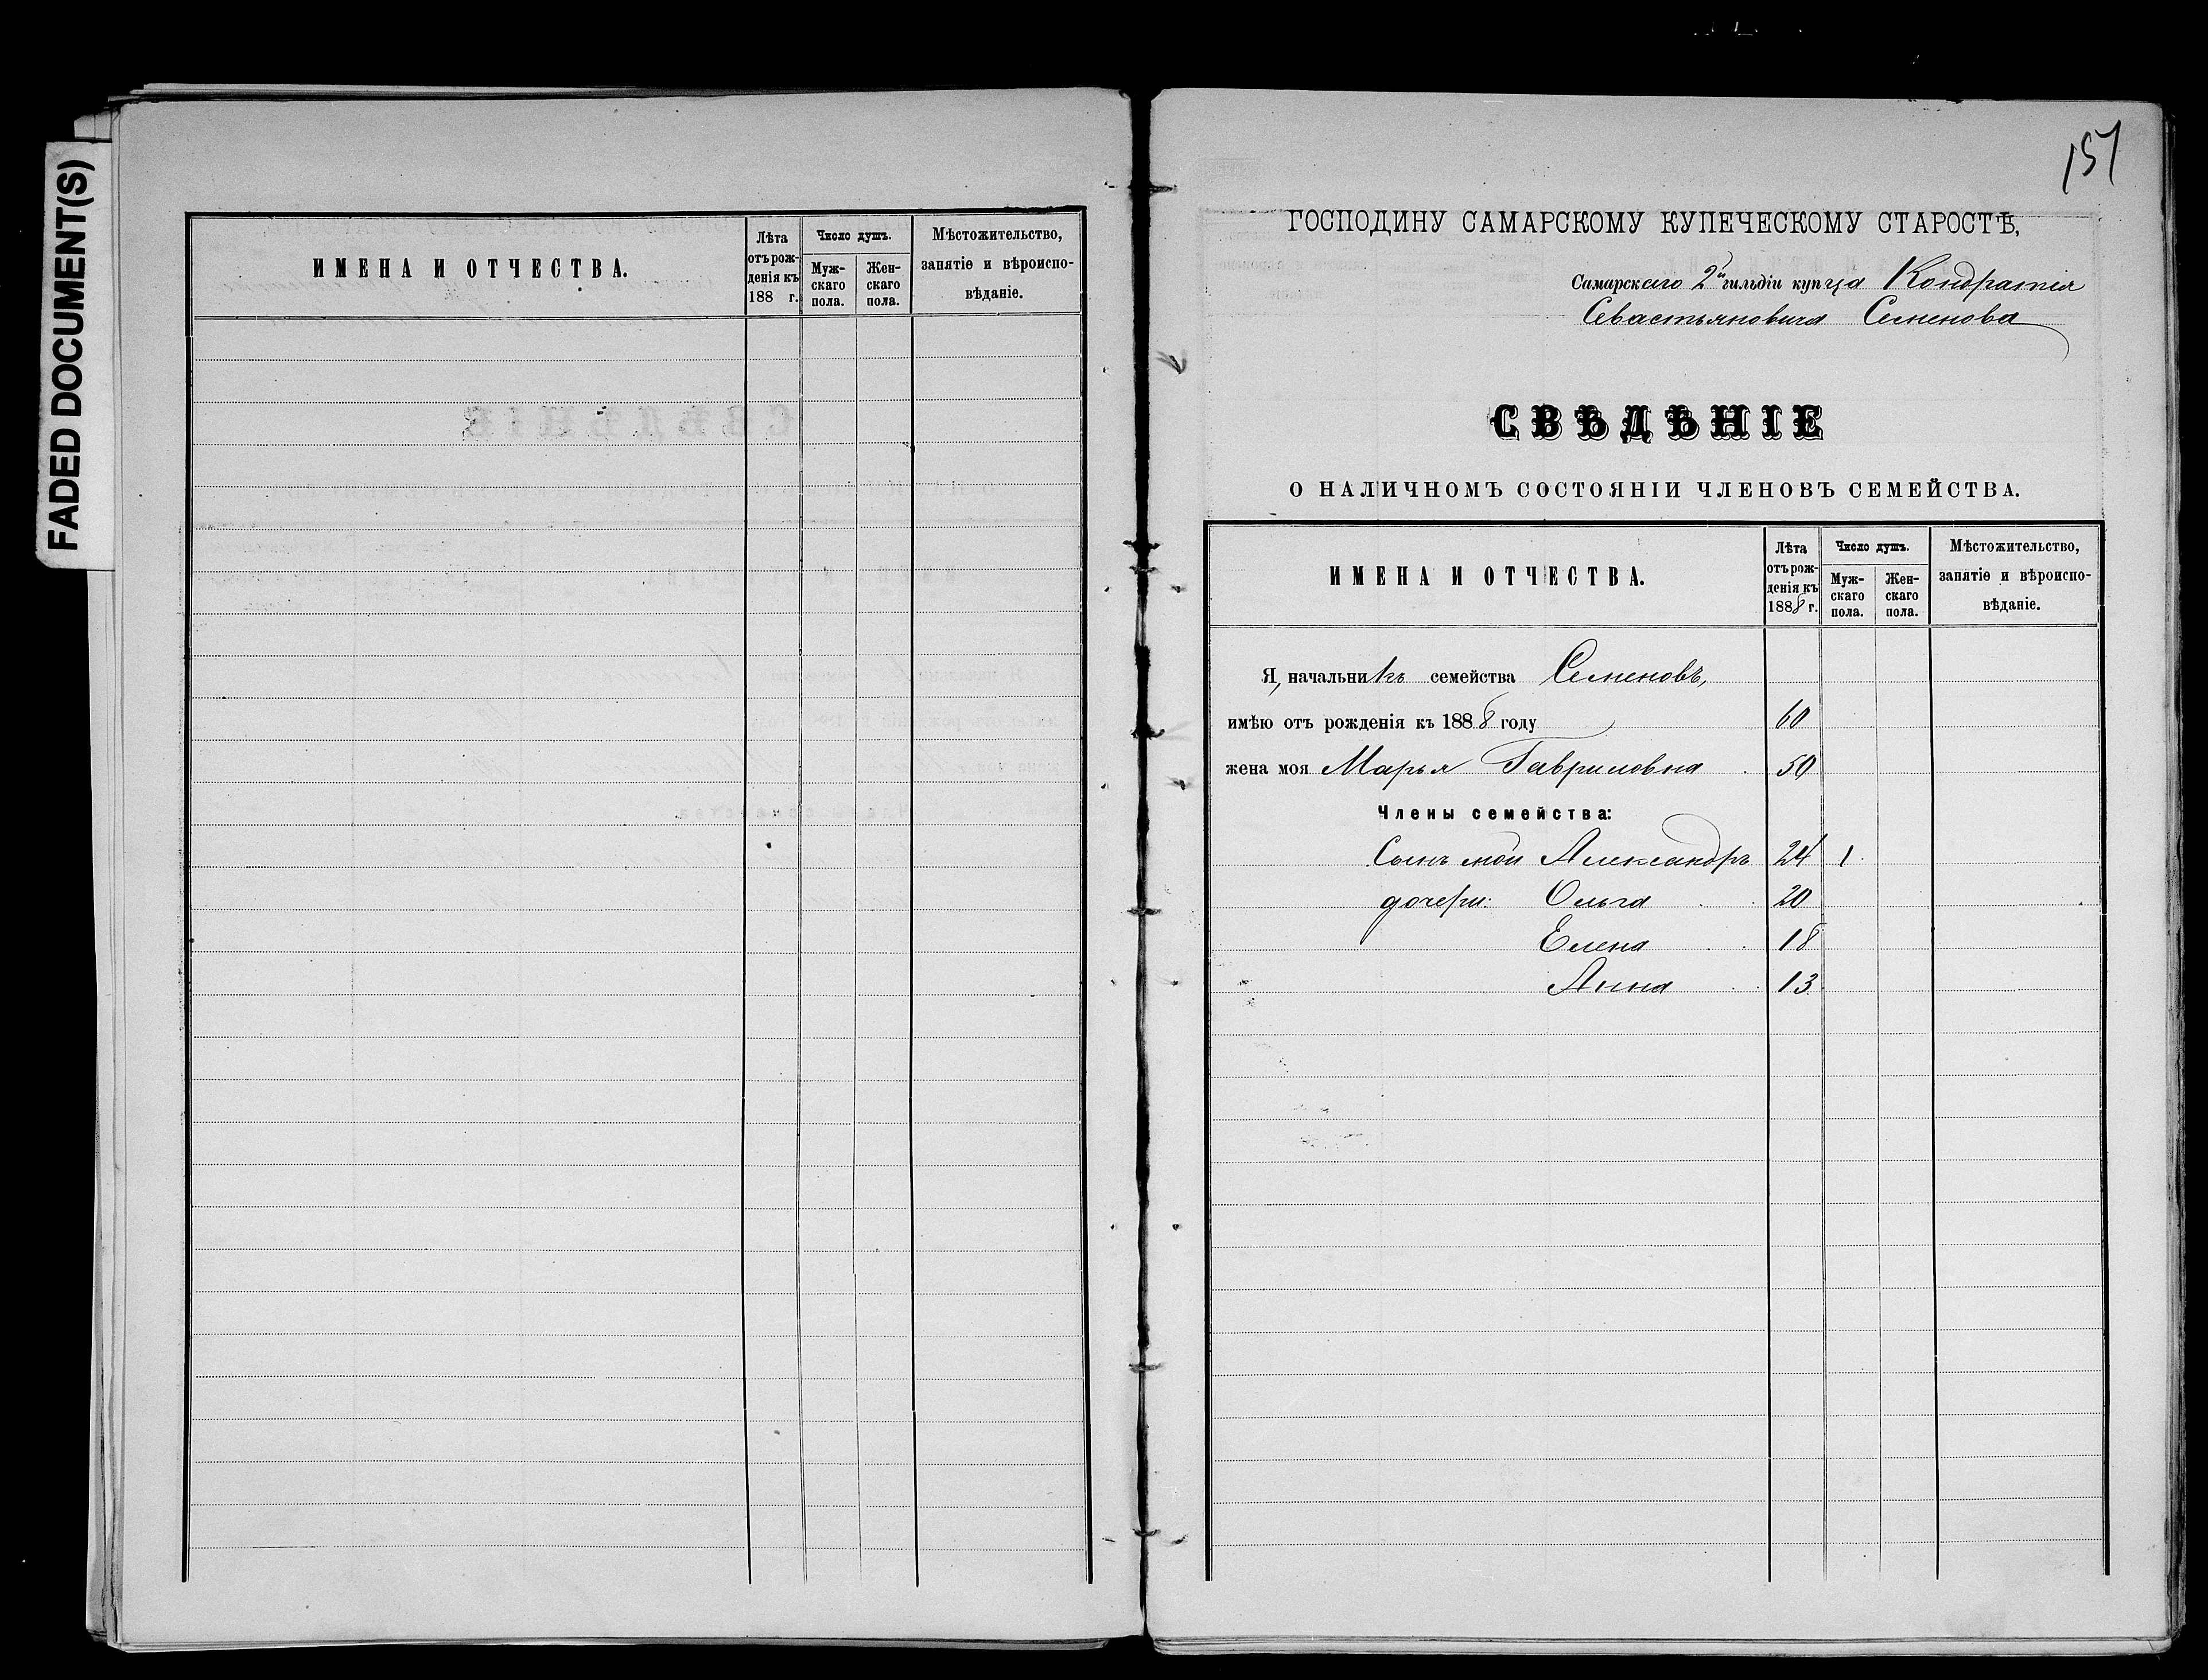 FADED DOCUMENT(S)
ИМЕНА И ОТЧЕСТВА.
Лѣта
отъ рож-
денія къ
188 г.
Число душъ.
Муж-
скаго
пола.
Жен-
скаго
пола.
Мѣстожительство,
занятіе и вѣроиспо-
вѣданіе.
151
ГОСПОДИНУ САМАРСКОМУ КУПЕЧЕСКОМУ СТАРОСТѢ,
Самарскаго 2й гильдіи купца Кондратія
Севастьяновича Семенова
СВѢДѢНІЕ
О НАЛИЧНОМЪ СОСТОЯНІИ ЧЛЕНОВЪ СЕМЕЙСТВА.
ИМЕНА И ОТЧЕСТВА.
Лѣта
отъ рож-
денія къ
1888 г.
Число душъ.
Муж-
скаго
пола.
Жен-
скаго
пола.
Мѣстожительство,
занятіе и вѣроиспо-
вѣданіе.
Я, начальникъ семейства Семеновъ,
имѣю отъ рожденія къ 1888 году 60
жена моя Марья Гавриловна 50
Члены семейства:
Сынъ мой Александръ 24 1
дочери: Ольга 20
Елена 18
Анна 13